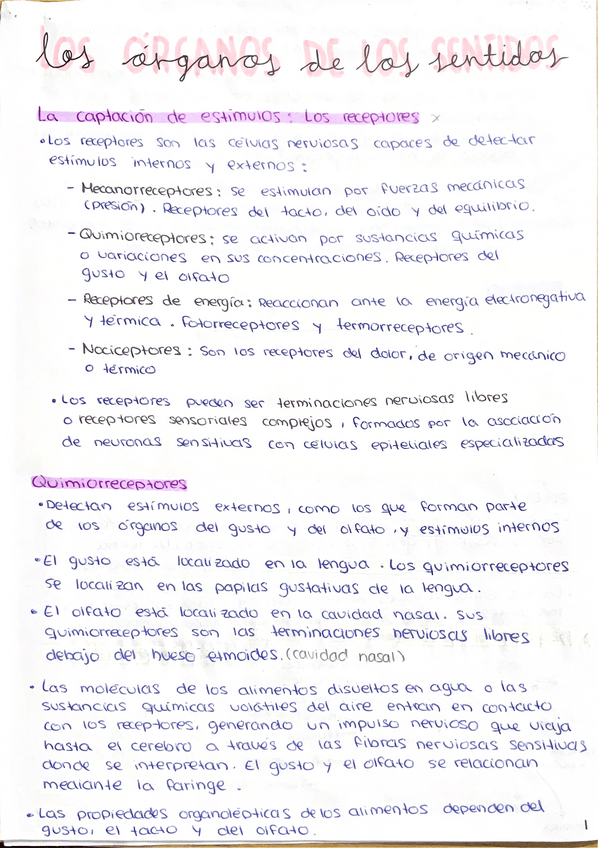 Los órganos de los sentidos
La captación de estímulos: Los receptores
• Los receptores son las células nerviosas capaces de detectar
estímulos internos y externos:
- Mecanorreceptores: se estimulan por fuerzas mecánicas
(presión). Receptores del tacto, del oído y del equilibrio.
- Quimioreceptores: se activan por sustancias químicas
o variaciones en sus concentraciones. Receptores del
gusto y el olfato
- Receptores de energía: Reaccionan ante la energía electronegativa
y térmica. Fotorreceptores y termorreceptores.
- Nociceptores: Son los receptores del dolor, de origen mecánico
o térmico
• Los receptores pueden ser terminaciones nerviosas libres
o receptores sensoriales complejos, formados por la asociación
de neuronas sensitivas con células epiteliales especializadas
Quimiorreceptores
• Detectan estímulos externos, como los que forman parte
de los órganos del gusto y del olfato, y estímulos internos
• El gusto está localizado en la lengua. Los quimiorreceptores
se localizan en las papilas gustativas de la lengua.
• El olfato está localizado en la cavidad nasal. Sus
quimiorreceptores son las terminaciones nerviosas libres
debajo del hueso etmoides. (cavidad nasal)
• Las moléculas de los alimentos disueltos en agua o las
sustancias químicas volátiles del aire entran en contacto
con los receptores, generando un impulso nervioso que viaja
hasta el cerebro a través de las fibras nerviosas sensitivas
donde se interpretan. El gusto y el olfato se relacionan
mediante la faringe.
• Las propiedades organolépticas de los alimentos dependen del
gusto, el tacto y del olfato.
1